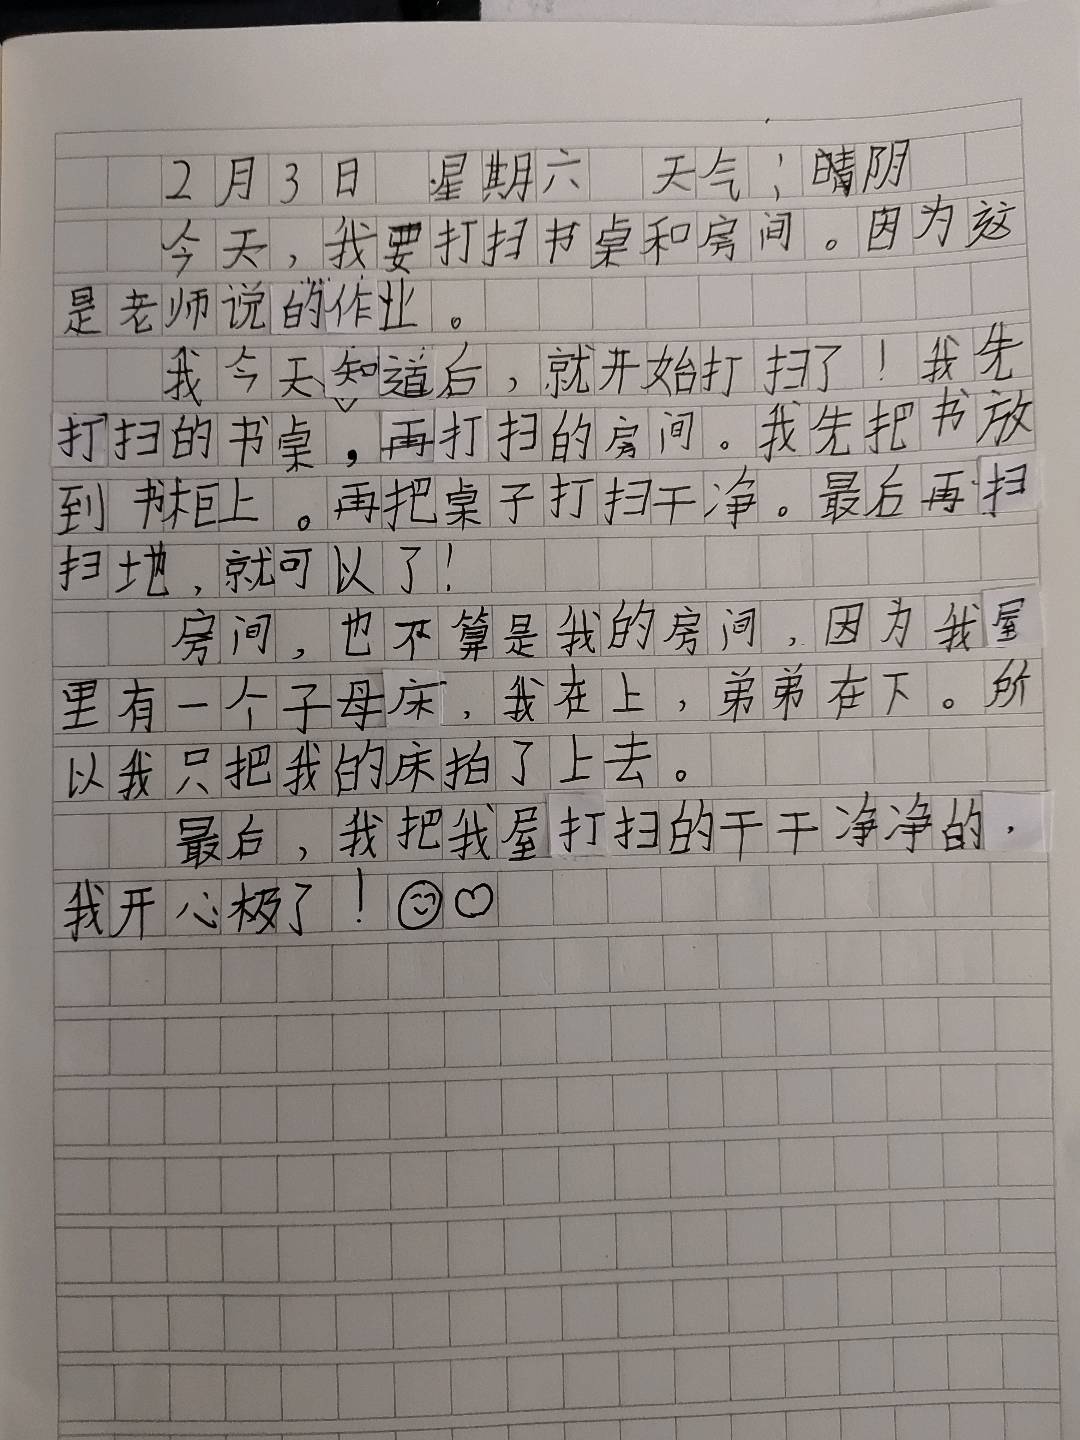 2月3日 星期六 天气；晴阴
今天，我要打扫书桌和房间。因为这
是老师说的作业。
我今天知道后，就开始打扫了！我先
打扫的书桌，再打扫的房间。我先把书放
到书柜上。再把桌子打扫干净。最后再扫
扫地，就可以了！
房间，也不算是我的房间，因为我屋
里有一个子母床，我在上，弟弟在下。所
以我只把我的床拍了上去。
最后，我把我屋打扫的干干净净的，
我开心极了！